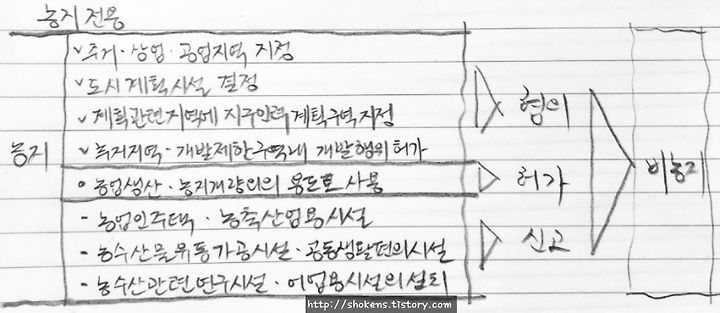 농지전용
v 주거·상업·공업지역 지정
v 도시계획시설 결정
v 계획관련지역에 지구단위계획구역지정
v 녹지지역·개발제한구역내 개발행위허가
농지
o 농업생산·농지개량외의 용도로 사용
- 농업인주택·농축산업용시설
- 농수산물유통가공시설·공동생활편의시설
- 농수산관련연구시설·어업용시설의 설치
협의
허가
신고
비농지
http://shokens.tistory.com